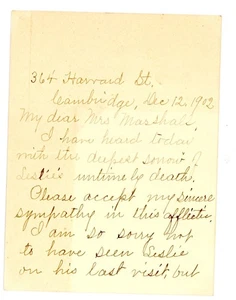 364 Harvard St.,
Cambridge, Dec 12, 1902
My dear Mrs Marshall,
I have heard today
with the deepest sorrow of
Leslie's untimely death.
Please accept my sincere
sympathy in this affliction.
I am so sorry not
to have seen Leslie
on his last visit, but